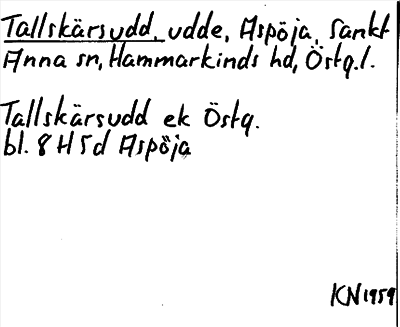 Tallskärsudd, udde, Aspöja, Sankt
Anna sn, Hammarkinds hd, Östg.l.
Tallskärsudd ek Östg.
bl. 8 H 5 d Aspöja
KN 1959